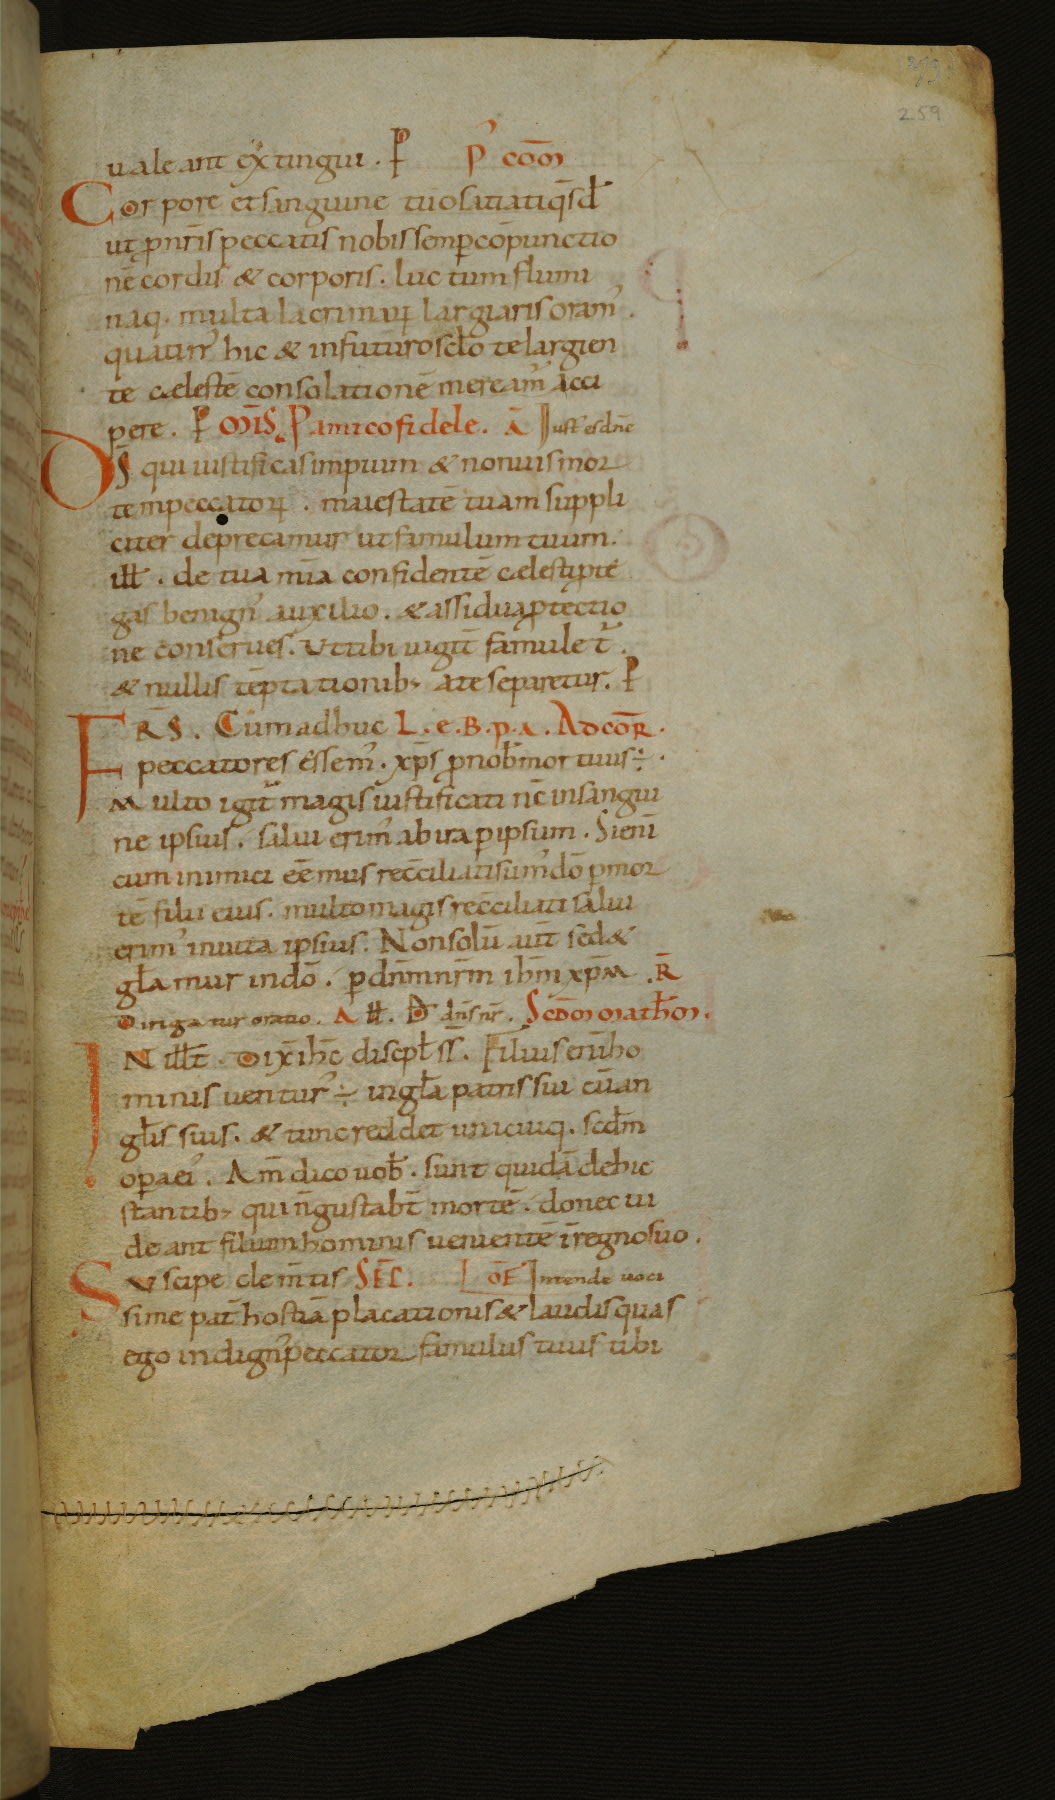 259
ualeant extingui . P P' com̄
Corpore et sanguine tuo satiati q̄s dn̄e
ut ꝓ nr̄is peccatis nobis semper cōpunctio
nē cordis & corporis . luctum flumi
naq. multa lacrimaꝝ largiaris oram' .
quatin' hic & in futuro sc̄lo te largien
te cælestē consolationē meream' acci
pere . P Mis̄ P amico fidele . A Iust' es dn̄e
Ds̄ qui iustificas impium & non uis mor
tem peccatoꝝ . maiestatē tuam suppli
citer deprecamur ut famulum tuum .
ill̄ . de tua mīa confidentē cælesti ꝓte
gas benign' auxilio . & assidua ꝓtectio
ne conserues . Ut tibi iugit̄ famulet' .
& nullis tēptationib; a te separetur . P
FRS̄ . Cum adhuc L . e . B . p . A . Ad cor̄ .
peccatores essem' . xp̄s ꝓ nob̄ mortuus ÷ .
Multo igit' magis iustificati nc̄ in sangui
ne ipsius . salui erim' ab ira ꝑ ipsum . Si eni̅
cum inimici eēmus recc̄iliati sum' dō ꝑ mor
tē filii eius . multo magis recc̄iliati salui
erim' in uita ipsius . Non solū aut̄ sed &
gl̄amur in dō . ꝑ dn̄m nr̄m ihm̄ xp̄m . R̄
Dirigatur oratio . A ll̄ . D dn̄s nr̄ . Scdm̄ math̄m .
IN ill̄ t̄ . Dix̄ ihc̄ discipl̄ ss̄ . Filius enī ho
minis uentur' ÷ in gl̄a patris sui cū an
gl̄is suis . & tunc reddet unicuiq. scd̄m
oꝑa ei' . Am̄ dico uob̄ . sunt quidā de hic
stantib; qui n̄ gustabt̄ mortē . donec ui
deant filium hominis uenientē ī regno suo .
Suscipe clem̄tis SEC̄ . OF̄ Intende uoci
sime pat̄ hostiā placationis & laudis quas
ego indign' peccator famulus tuus tibi